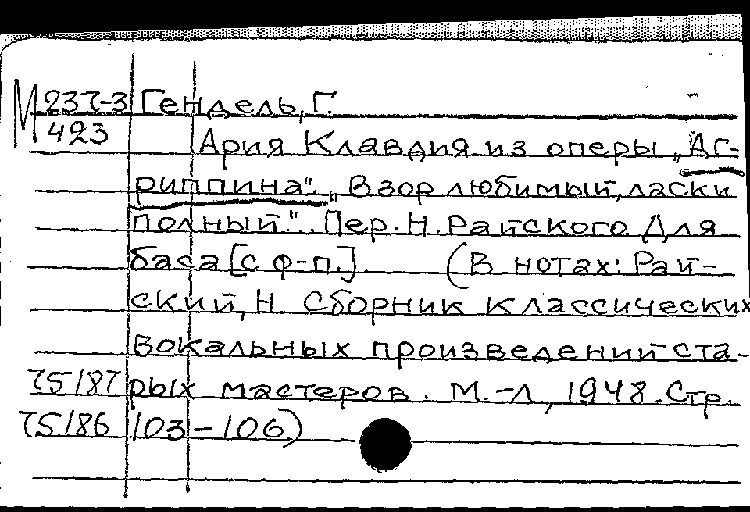 М 237-3 Гендель, Г.
423 Ария Клавдия из оперы „Аг-
риппина". „Взор любимый, ласки
полный". Пер. Н. Райского Для
баса [с ф-п.] (В нотах: Рай-
ский, Н. Сборник классических
вокальных произведений ста-
75/87 рых мастеров. М.-Л, 1948. Стр.
75/86 103-106)